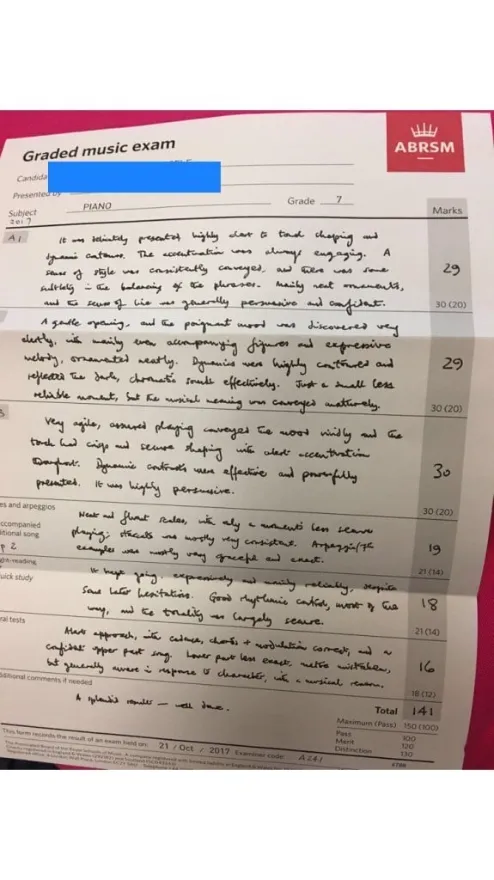 Graded music exam
ABRSM
Candida
Presented by
Subject PIANO Grade 7 Marks
2017
A1 It was delicately presented, highly alert to tonal shaping and
dynamic contours. The accentuation was always engaging. A
sense of style was consistently conveyed, and there was some
subtlety in the balancing of the phrases. Mainly neat ornaments, 29
and the sense of line was generally persuasive and confident. 30 (20)
A gentle opening, and the poignant mood was discovered very
alertly, with mainly even accompanying figures and expressive
melody, ornamented neatly. Dynamics were highly contoured and 29
reflected the dark, chromatic sounds effectively. Just a small less
reliable moment, but the musical meaning was conveyed maturely. 30 (20)
Very agile, assured playing conveyed the mood vividly and the
touch had crisp and secure shaping with alert accentuation
throughout. Dynamic contrasts were effective and powerfully 30
presented. It was highly persuasive. 30 (20)
es and arpeggios Neat and fluent scales, with only a moment's less secure
accompanied playing; staccato was mostly very consistent. Arpeggio/7th 19
ditional song examples was mostly very graceful and exact. 21 (14)
p 2
ght-reading It kept going expressively and mainly reliably, despite
uick study some later hesitations. Good rhythmic control, most of the 18
way, and the tonality was largely secure. 21 (14)
ral tests Alert approach, with cadence, chords + modulation correct, and a
confident upper part song. Lower part less exact, metre mistaken, 16
but generally aware in response to character, with a musical reason. 18 (12)
ditional comments if needed
A splendid result – well done. Total 141
Maximum (Pass) 150 (100)
Pass 100
Merit 120
Distinction 130
This form records the result of an exam held on: 21 / Oct / 2017 Examiner code: A261